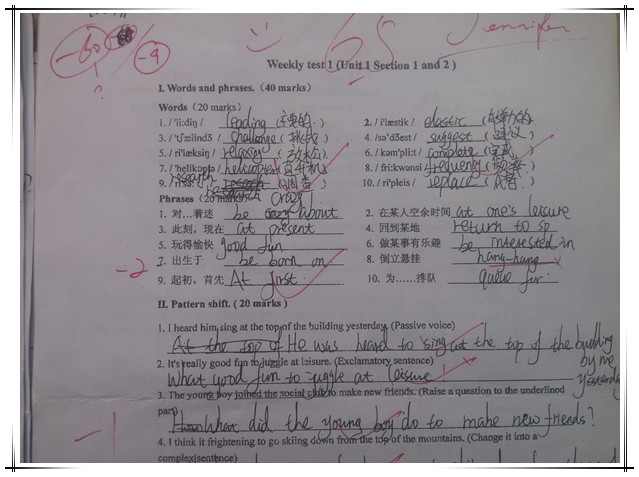 -60 -9 68 Jennifer
Weekly test 1 (Unit 1 Section 1 and 2 )
I. Words and phrases. (40 marks)
Words (20 marks)
1. / 'li:diŋ / leading (主要的) 2. / i'læstik / elastic (有弹力的)
3. / 'tʃælindʒ / challenge (挑战) 4. /sə'dʒest / suggest (建议)
5. / ri'læksiŋ / relaxing 6. / kəm'pli:t / complete (完成)
7. / 'helikɒptə / helicopter (直升机) 8. / fri:kwənsi / frequency
research
9. / ri'sə:tʃ / research (调查) 10. / ri'pleis / replace (代替)
Phrases (20 marks) crazy
1. 对…着迷 be about 2. 在某人空余时间 at one's leisure
3. 此刻, 现在 at present 4. 回到某地 return to sp
5. 玩得愉快 good fun 6. 做某事有乐趣 be interested in
-2 7. 出生于 be born on 8. 倒立悬挂 hang-hang
9. 起初, 首先 At first 10. 为……排队 queue for
II. Pattern shift. ( 20 marks )
1. I heard him sing at the top of the building yesterday. (Passive voice)
At the top of He was heard to sing at the top of the building by me yesterday
2. It's really good fun to juggle at leisure. (Exclamatory sentence)
What good fun to juggle at leisure !
3. The young boy joined the social club to make new friends. (Raise a question to the underlined
part)
-1 How What did the young boy do to make new friends?
4. I think it frightening to go skiing down from the top of the mountains. (Change it into a
complex sentence)